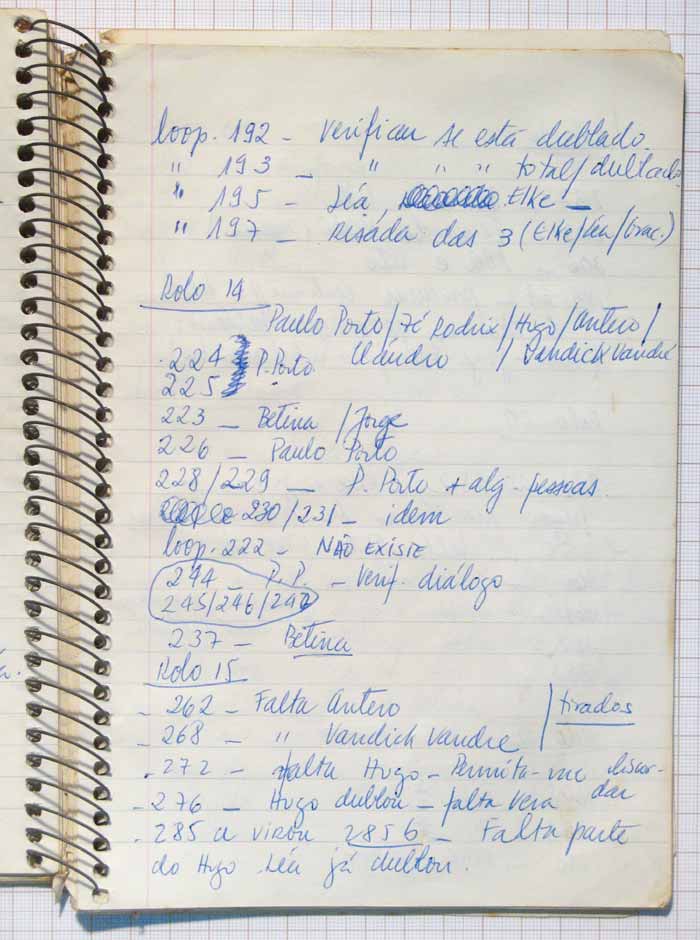 loop. 192 - Verificar se está dublado.
" 193 - " " " total/dublado
" 195 - Léa, Elke -
" 197 - Risada das 3 (Elke/Léa/Grac.)
Rolo 14
Paulo Porto/Zé Rodrix/Hugo/Antero/
.224 P.Porto Cláudio / Vandick Vandré
225
223 - Betina / Jorge
226 - Paulo Porto
228/229 - P. Porto + alg. pessoas
230/231 - idem
loop. 222 - NÃO EXISTE
244 - P.P. - Verif. diálogo
245/246/247
237 - Betina
Rolo 15
- 262 - Falta Antero | tirados
- 268 - " Vandick Vandre
. 272 - falta Hugo - Permita-me discor-
dar
- 276 - Hugo dublou - falta Vera
. 285 a virou 285b - Falta parte
do Hugo Léa já dublou.